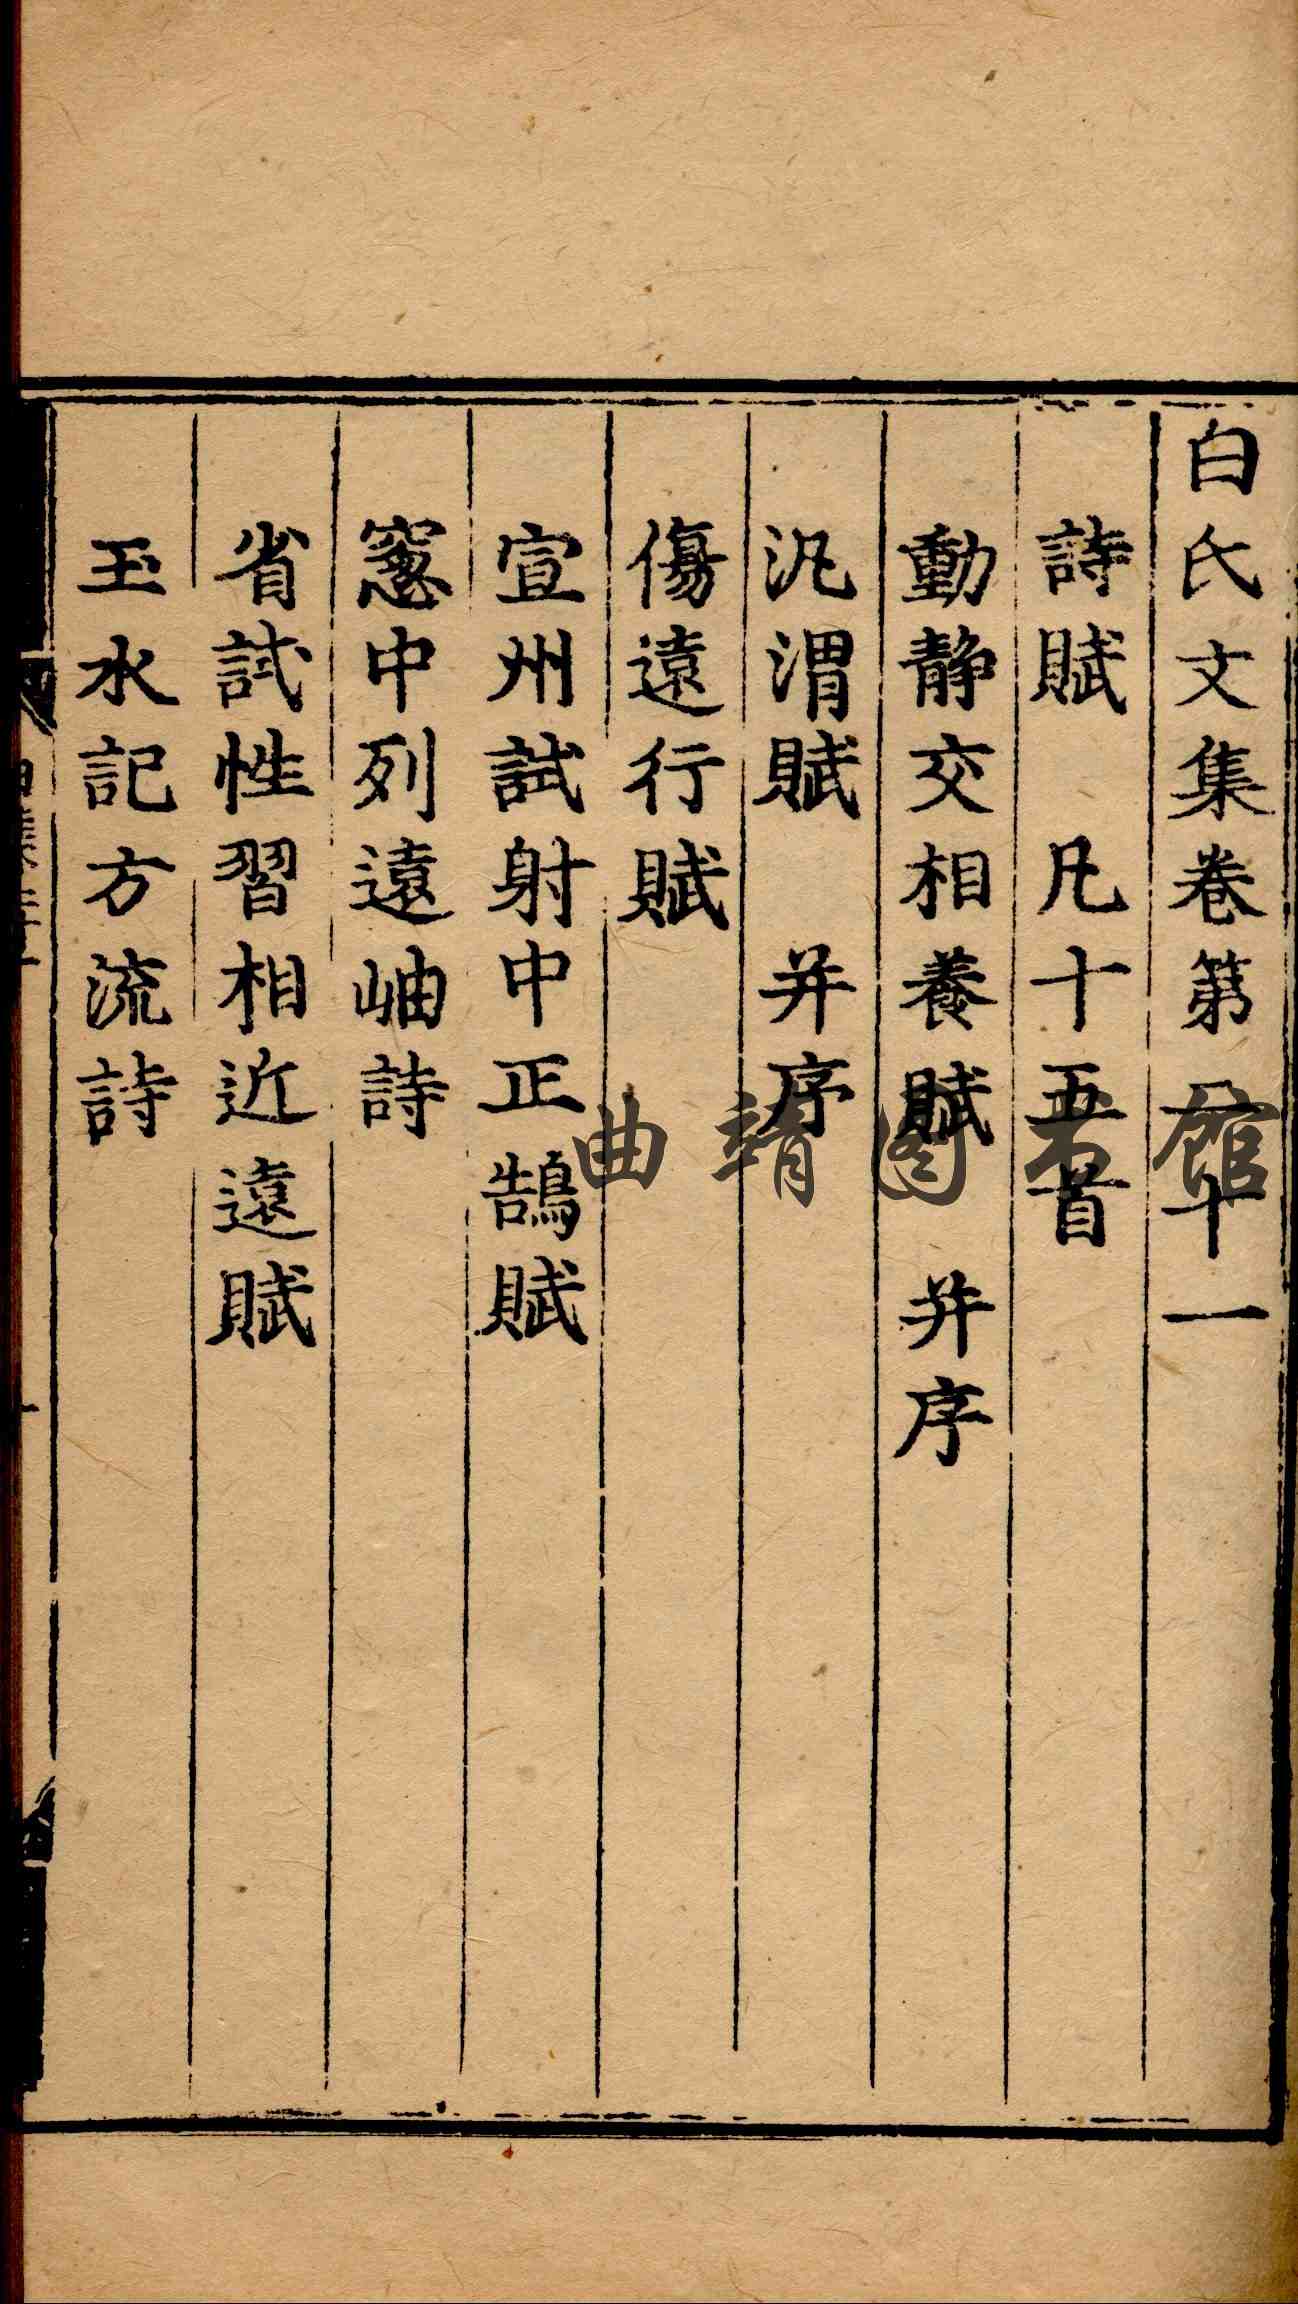 白氏文集卷第二十一
詩賦　凡十五首
動静交相養賦　并序
汎渭賦　并序
傷遠行賦
宣州試射中正鵠賦
窻中列遠岫詩
省試性習相近遠賦
玉水記方流詩
曲靖图书馆